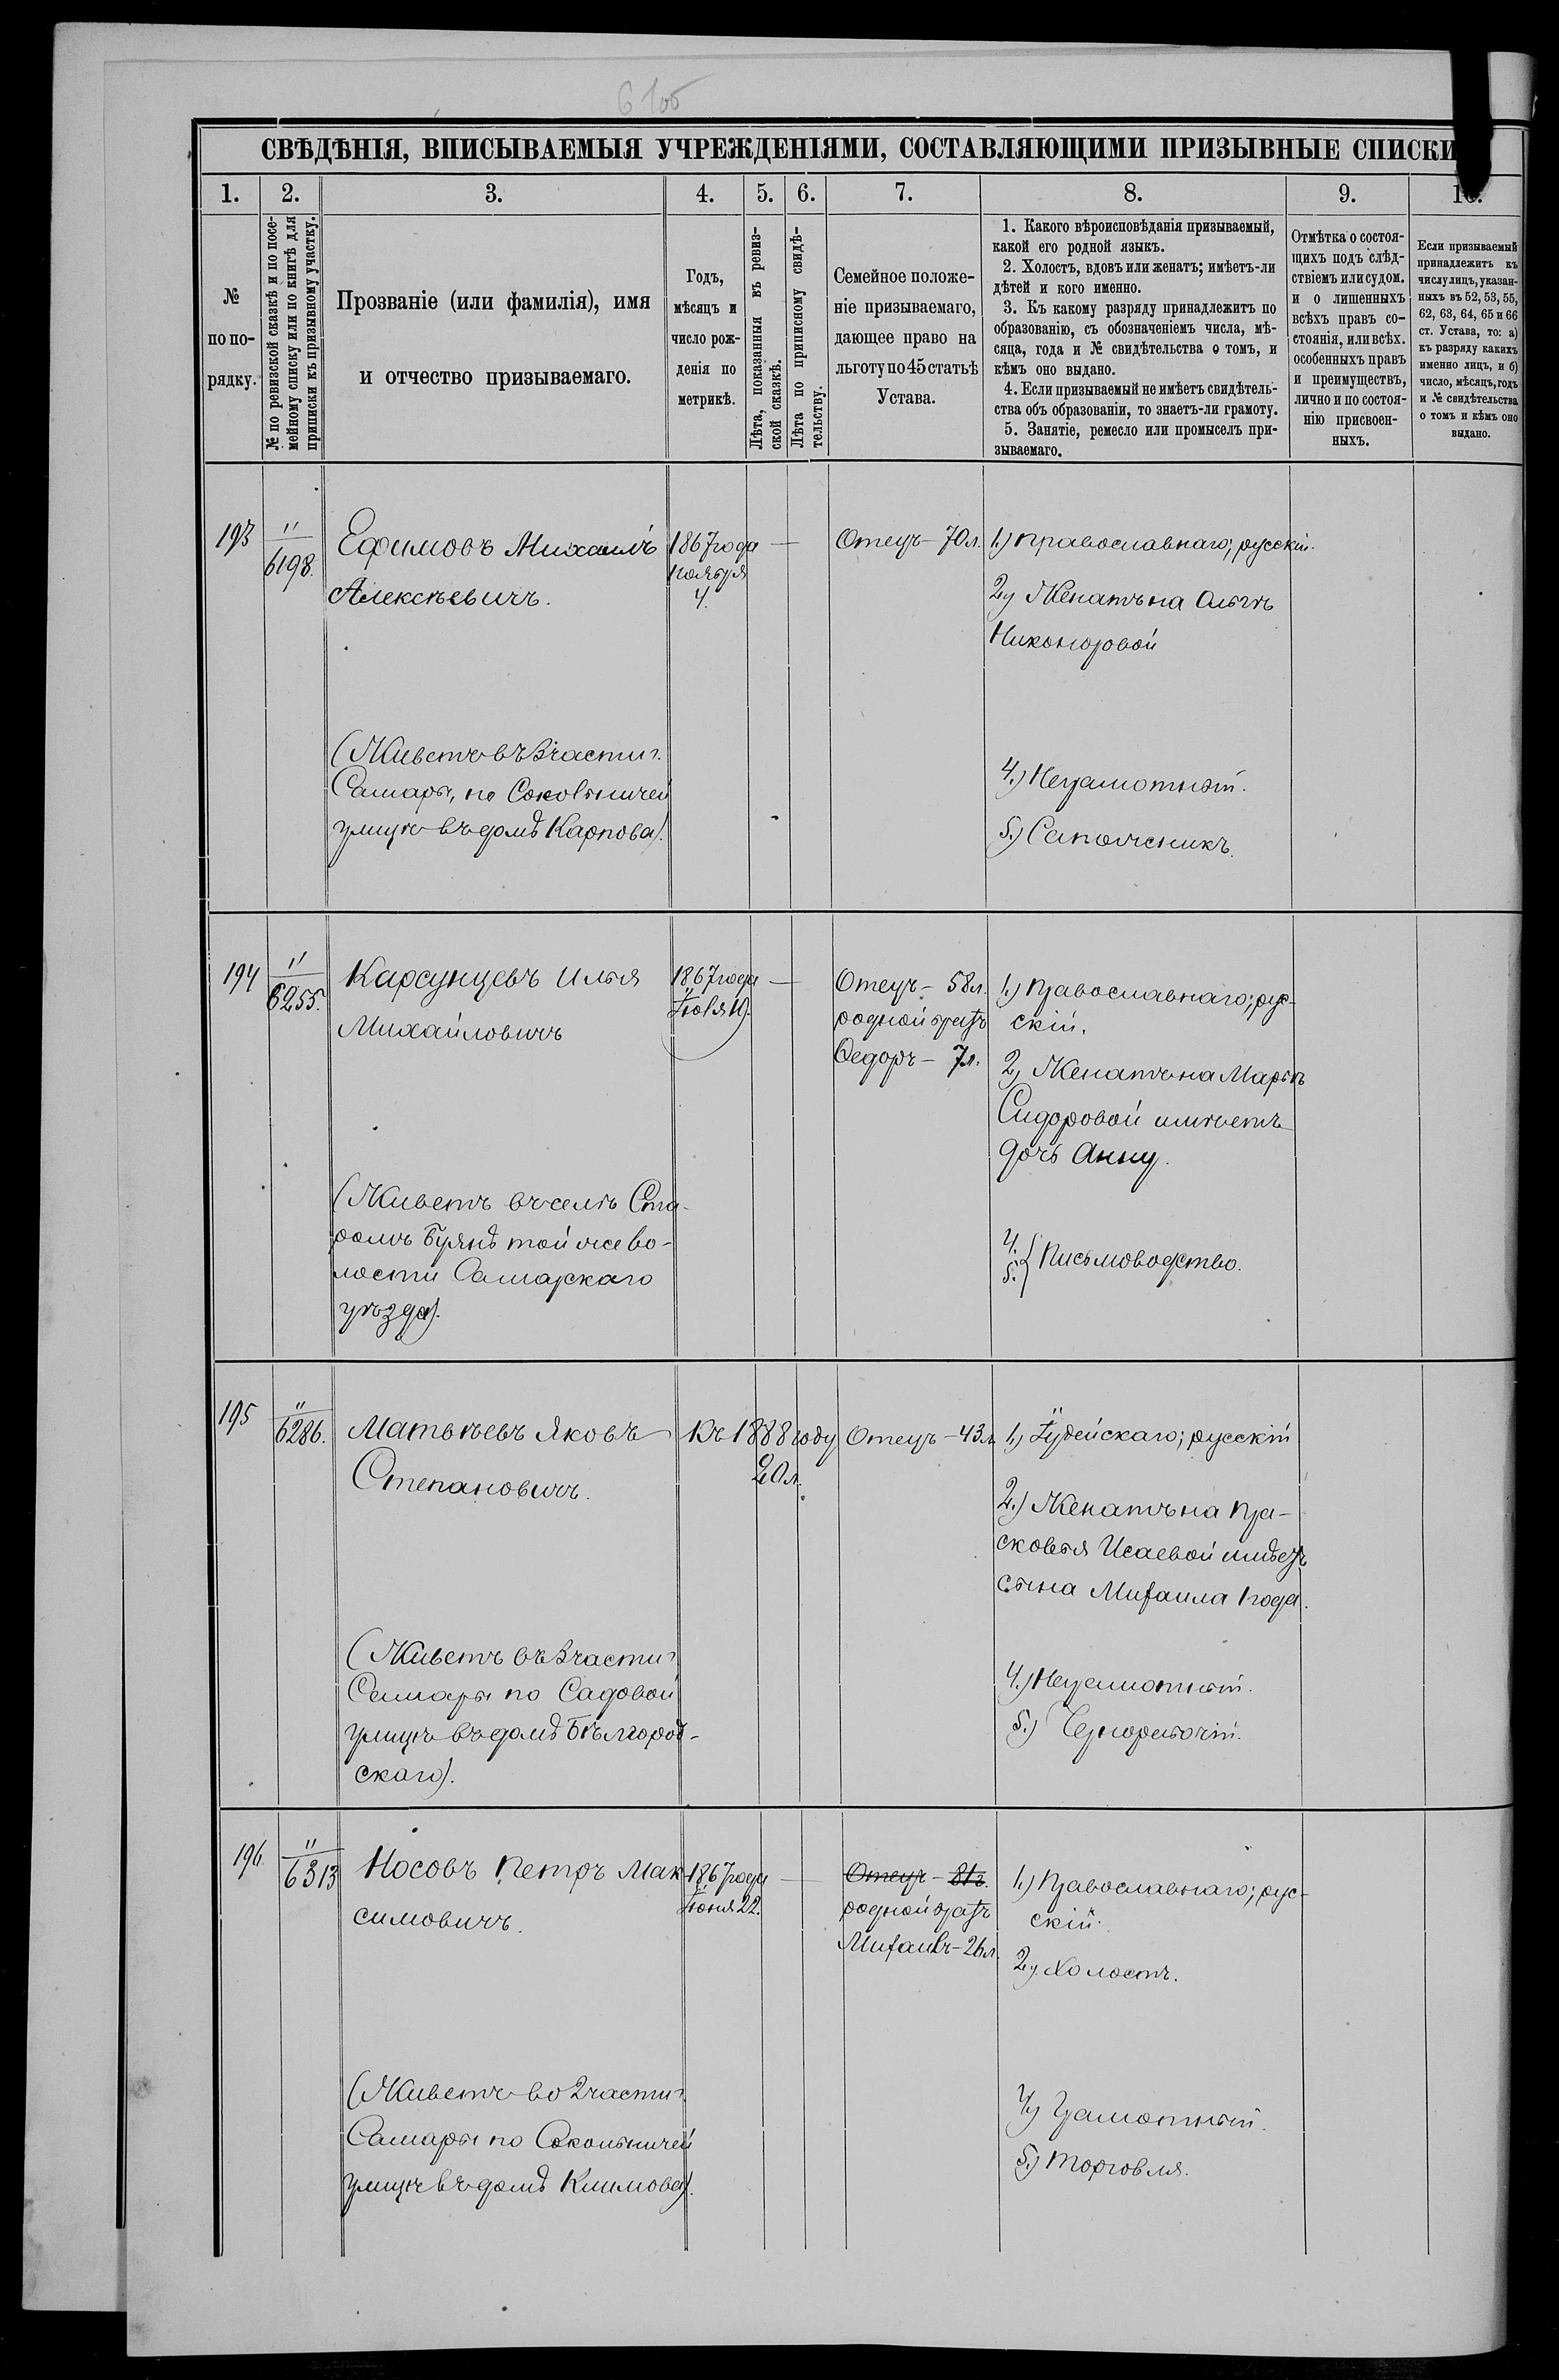 6 105
СВѢДѢНІЯ, ВПИСЫВАЕМЫЯ УЧРЕЖДЕНІЯМИ, СОСТАВЛЯЮЩИМИ ПРИЗЫВНЫЕ СПИСКИ
1. 2. 3. 4. 5. 6. 7. 8. 9. 10.
№
по по-
рядку.
№ по ревизской сказкѣ и по посе-
мейному списку или по книгѣ для
приписки къ призывному участку.
Прозваніе (или фамилія), имя
и отчество призываемаго.
Годъ,
мѣсяцъ и
число рож-
денія по
метрикѣ.
Лѣта, показанныя въ ревиз-
ской сказкѣ.
Лѣта по приписному свидѣ-
тельству.
Семейное положе-
ніе призываемаго,
дающее право на
льготу по 45 статьѣ
Устава.
1. Какого вѣроисповѣданія призываемый,
какой его родной языкъ.
2. Холостъ, вдовъ или женатъ; имѣетъ-ли
дѣтей и кого именно.
3. Къ какому разряду принадлежитъ по
образованію, съ обозначеніемъ числа, мѣ-
сяца, года и № свидѣтельства о томъ, и
кѣмъ оно выдано.
4. Если призываемый не имѣетъ свидѣтель-
ства объ образованіи, то знаетъ-ли грамоту.
5. Занятіе, ремесло или промыселъ при-
зываемаго.
Отмѣтка о состоя-
щихъ подъ слѣд-
ствіемъ или судом.
и о лишенныхъ
всѣхъ правъ со-
стоянія, или всѣх.
особенныхъ правъ
и преимуществъ,
лично и по состоя-
нію присвоен-
ныхъ.
Если призываемый
принадлежитъ къ
числу лицъ, указан-
ныхъ въ 52, 53, 55,
62, 63, 64, 65 и 66
ст. Устава, то: а)
къ разряду какихъ
именно лицъ, и б)
число, мѣсяцъ, годъ
и № свидѣтельства
о томъ и кѣмъ оно
выдано.
193
"
6198.
Ефимовъ Михаилъ
Алексѣевичъ.
(Живетъ въ 3 части г.
Самары, по Сокольничей
улицѣ въ домѣ Карпова).
1867 года
ноября
4.
—
Отецъ – 70 л.
1.) Православнаго; русскій.
2.) Женатъ на Ольгѣ
Никоноровой
4.) Неграмотный.
5.) Сапожникъ.
194
"
6255.
Карсунцевъ Илья
Михайловичъ
(Живетъ въ селѣ Ста-
ромъ Буянѣ той же во-
лости Самарскаго
уѣзда).
1867 года
Іюля 19.
—
Отецъ – 58 л.
родной братъ
Ѳедоръ – 7 л.
1.) Православнаго; рус-
скій.
2.) Женатъ на Марьѣ
Сидоровой имѣетъ
дочь Анну.
4.
5. } Письмоводство.
195
"
6286.
Матвѣевъ Яковъ
Степановичъ.
(Живетъ въ 3 части г.
Самары по Садовой
улицѣ въ домѣ Бѣлгород-
скаго).
Къ 1888 году
20 л.
Отецъ – 43 л.
1.) Іудейскаго; русскій
2.) Женатъ на Пра-
сковья Исаевой имѣетъ
сына Михаила 1 года.
4.) Неграмотный.
5.) Чернорабочій.
196.
"
6313
Носовъ Петръ Мак-
симовичъ.
(Живетъ во 2 части г.
Самары по Сокольничей
улицѣ въ домѣ Климова).
1867 года
Іюня 22.
—
Отецъ – 81 г.
родной братъ
Михаилъ – 26 л.
1.) Православнаго; рус-
скій.
2.) Холостъ.
4.) Грамотный.
5.) Торговля.